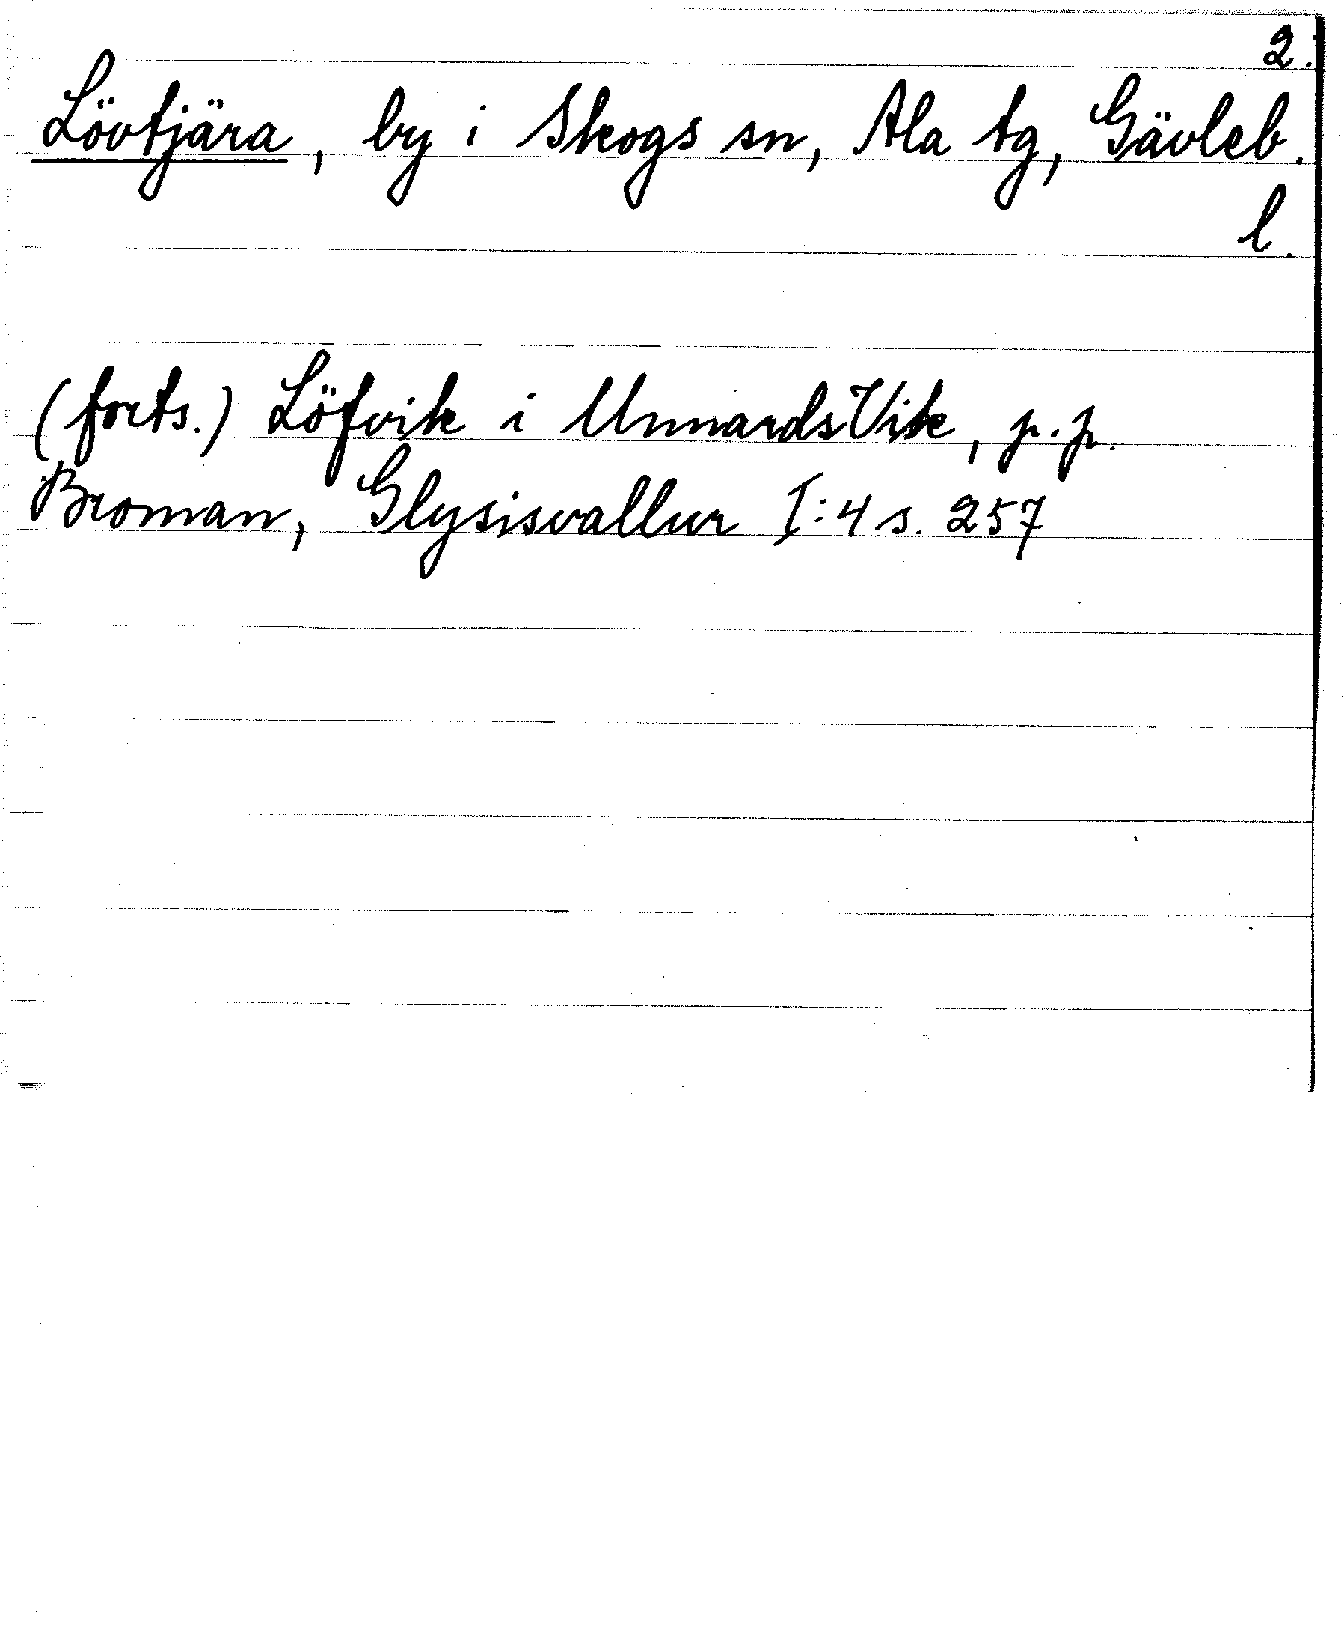 2.
Lövtjära, by i Skogs sn, Ala tg, Gävleb.
l.
(forts.) Löfvik i UnnardsVik, p.p.
Broman, Glysisvallur I:4 s. 257